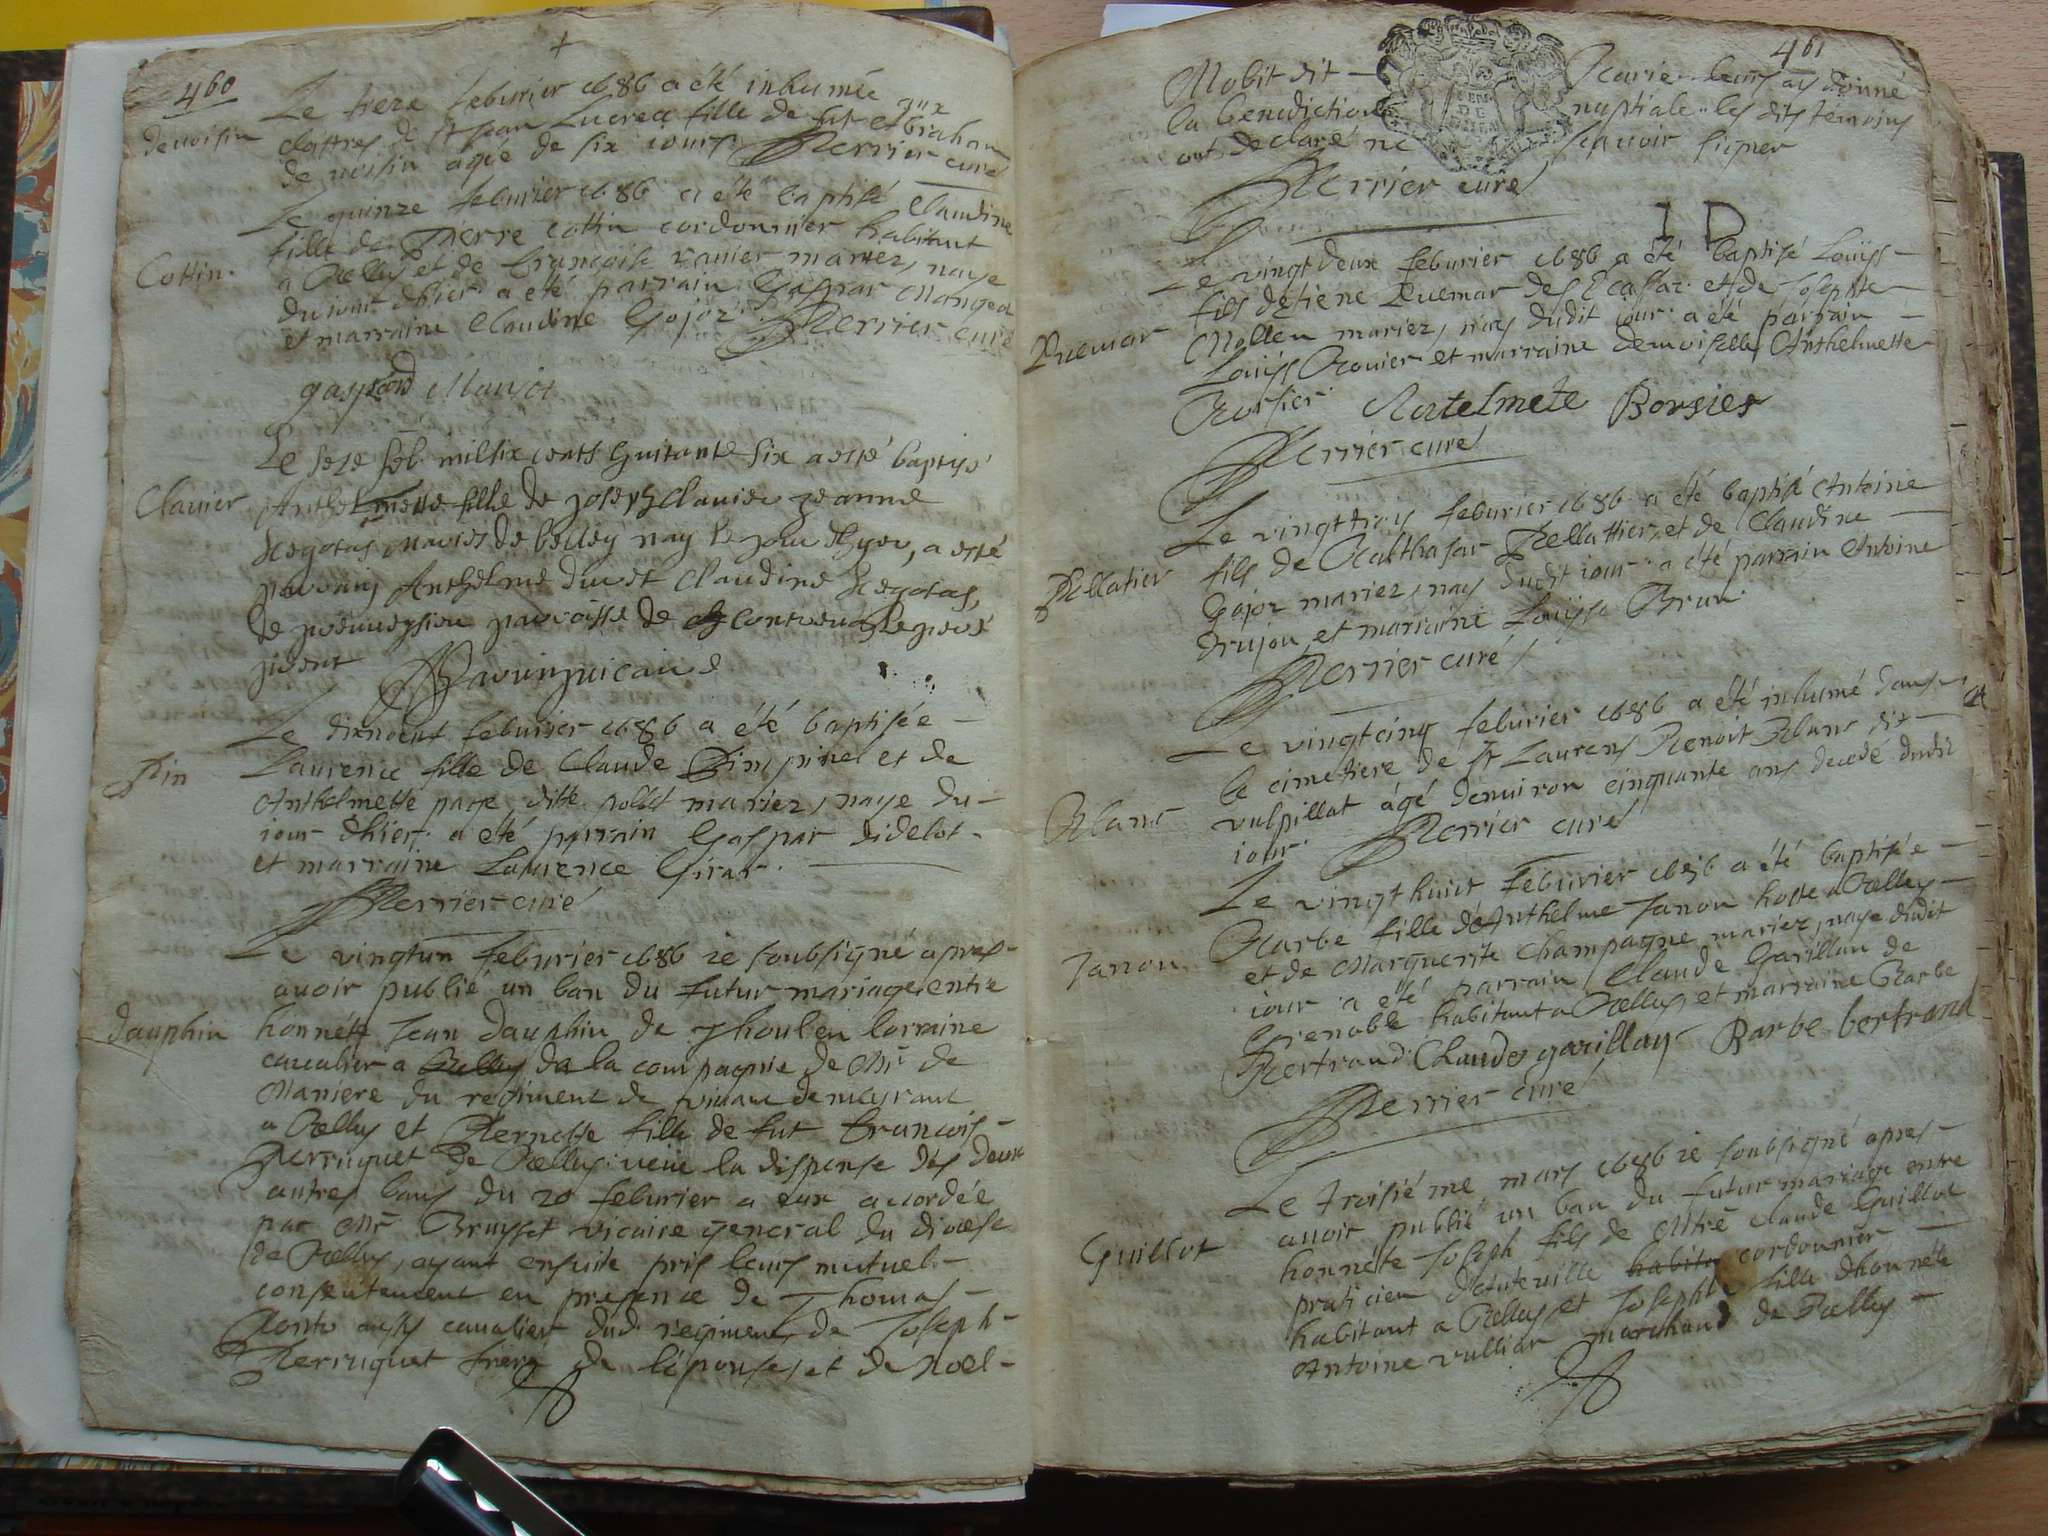 460
+
Le treze feburier 1686 a été inhumée aux
devoisin
cloittres de st Jean Lucrece fille de fut Abraham
de voisin agée de six iours Perrier curé
Le quinze feburier 1686 a été baptisée Claudine
fille de Pierre Cottin cordonnier habitant
Cottin
a Belley et de francoise mariez, naye
du iour d'hier a été parrain Gaspar Mangeot
et marraine Claudine Gojoz Perrier curé
gaspard
Le seze feb. mil six cents huitante six a esté baptisé
Clavier
Anthelmette fille de joseph Clavier jeanne
maries de belley nay le jour d'hyer, a esté
parrain Anthelme et Claudine
paroisse de
Le dixneuf feburier 1686 a été baptisée
Pin
Laurence fille de Claude Pin et de
Anthelmette page ditte mariez, naye du
iour d'hier a été parrain Gaspar didelot
et marraine Laurence Girar.
Perrier curé
Le vingtun feburier 1686 ie soubsigné apres
avoir publié un ban du futur mariage entre
dauphin
honnéte Jean dauphin de Thoulen lorraine
cavalier a Belley de la compagnie de Mr de
Maniere du regiment de
a Belley et Pernette fille de fut francois
Perruquet de Belley: veüe la dispense des deux
autres bans du 20 feburier a eux accordée
par Mr Bruysset vicaire general du diocese
de Belley, ayant ensuite pris leurs mutuel
consentement en presence de Thomas
aussy cavalier dud. regiment, de Joseph
Perruquet frere de l'épouse, et de Noel
461
Mobit dit leurs ay donné
la benediction nuptiale les dits témoins
ont declaré ne scavoir signer
Perrier curé
J D
Le vingtdeux feburier 1686 a été baptisé Loüys
fils d'etiene des Ecassaz et de Josephte
Mollen mariez, nay dudit iour a été parrain
Loüys et marraine demoiselle Anthelmette
Borsier Antelmete Borsies
Perrier curé
Le vingttroys feburier 1686 a été baptisé Antoine
Pellatier
fils de Balthasar Pellattier, et de Claudine
Gojoz mariez, nay dudit iour a été parrain Antoine
drujon, et marraine Loüyse Brun
Perrier curé
Le vingtcinq feburier 1686 a été inhumé dans
le cimetiere de st Laurens Benoit Blanc dit
Blanc
vulpillat agé denviron cinquante ans decedé dudit
iour. Perrier curé
Le vingthuict feburier 1686 a été baptisée
Barbe fille d'Anthelme Janon hoste a Belley
Janon
et de Marguerite Champagne mariez, naye dudit
iour a été parrain Claude Garillan de
Grenoble habitant a Belley, et marraine Barbe
Bertrand. Claude garillan Barbe bertrand
Perrier curé
Le troisiéme mars 1686 ie soubsigné apres
avoir publié un ban du futur mariage entre
Guillot
honnéte Joseph fils de Mtre Claude Guillot
praticien d'Auteville habita cordonnier
habitant a Belley et Josephte fille d'honnéte
Antoine vulliar marchand de Belley